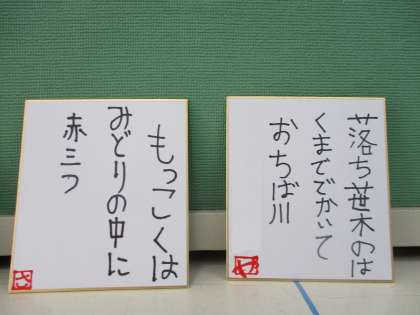 落ち葉木のは
くまででかいて
おちば川
もっこくは
みどりの中に
赤三つ